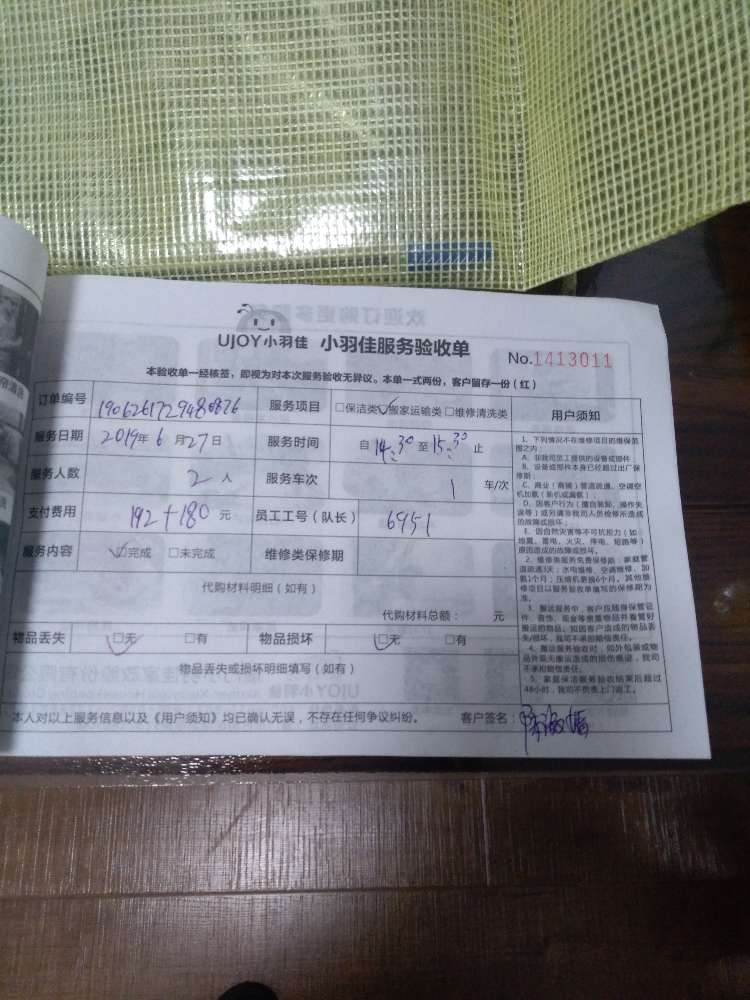 UJOY小羽佳 小羽佳服务验收单
No.1413011
本验收单一经核签，即视为对本次服务验收无异议。本单一式两份，客户留存一份（红）
订单编号 服务项目 □保洁类☑搬家运输类□维修清洗类 用户须知
服务日期 2019年 6 月 27 日 服务时间 自 14:30 至 15:30 止
服务人数 2 人 服务车次 1 车/次
支付费用 192+180 元 员工工号（队长） 6951
服务内容 ☑完成 □未完成 维修类保修期
代购材料明细（如有）
代购材料总额： 元
物品丢失 ☑无 □有 物品损坏 ☑无 □有
物品丢失或损坏明细填写（如有）
本人对以上服务信息以及《用户须知》均已确认无误，不存在任何争议纠纷。 客户签名：
1、下列情况不在维修项目的维保范
围之内：
A、非我司员工提供的设备或部件；
B、设备或部件本身已经超过出厂保
修期；
C、商业（商铺）管道疏通、空调空
机加氨（新机或漏氨）；
D、因客户行为（擅自装卸、操作失
误等）或另请非我司人员检修所造成
的故障或损坏；
E、因自然灾害等不可抗拒力（如
地震、雷电、火灾、停电、短路等）
原因造成的故障或损坏。
2、维修类服务免费保修期：家庭管
道疏通3天；水电维修、空调维修、加
氨1个月；压缩机更换6个月。其他维
修项目以服务验收单填写的保修期为
准。
3、搬运服务中，客户应随身保管证
件、首饰、现金等贵重物品并看管好
搬运的物品。如因客户造成的物品丢
失/损坏，我司不承担赔偿责任。
4、搬运服务验收时，如外包装或物
品并无因搬运造成的损伤痕迹，我司
不承担赔偿责任。
5、家庭保洁服务验收结束后超过
48小时，我司不负责上门返工。